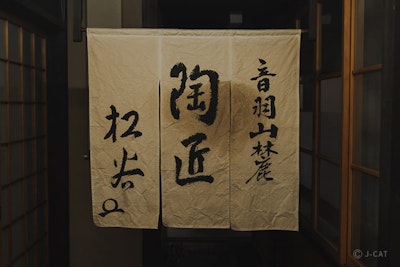 音羽山麓
陶匠
松谷
© J-CAT